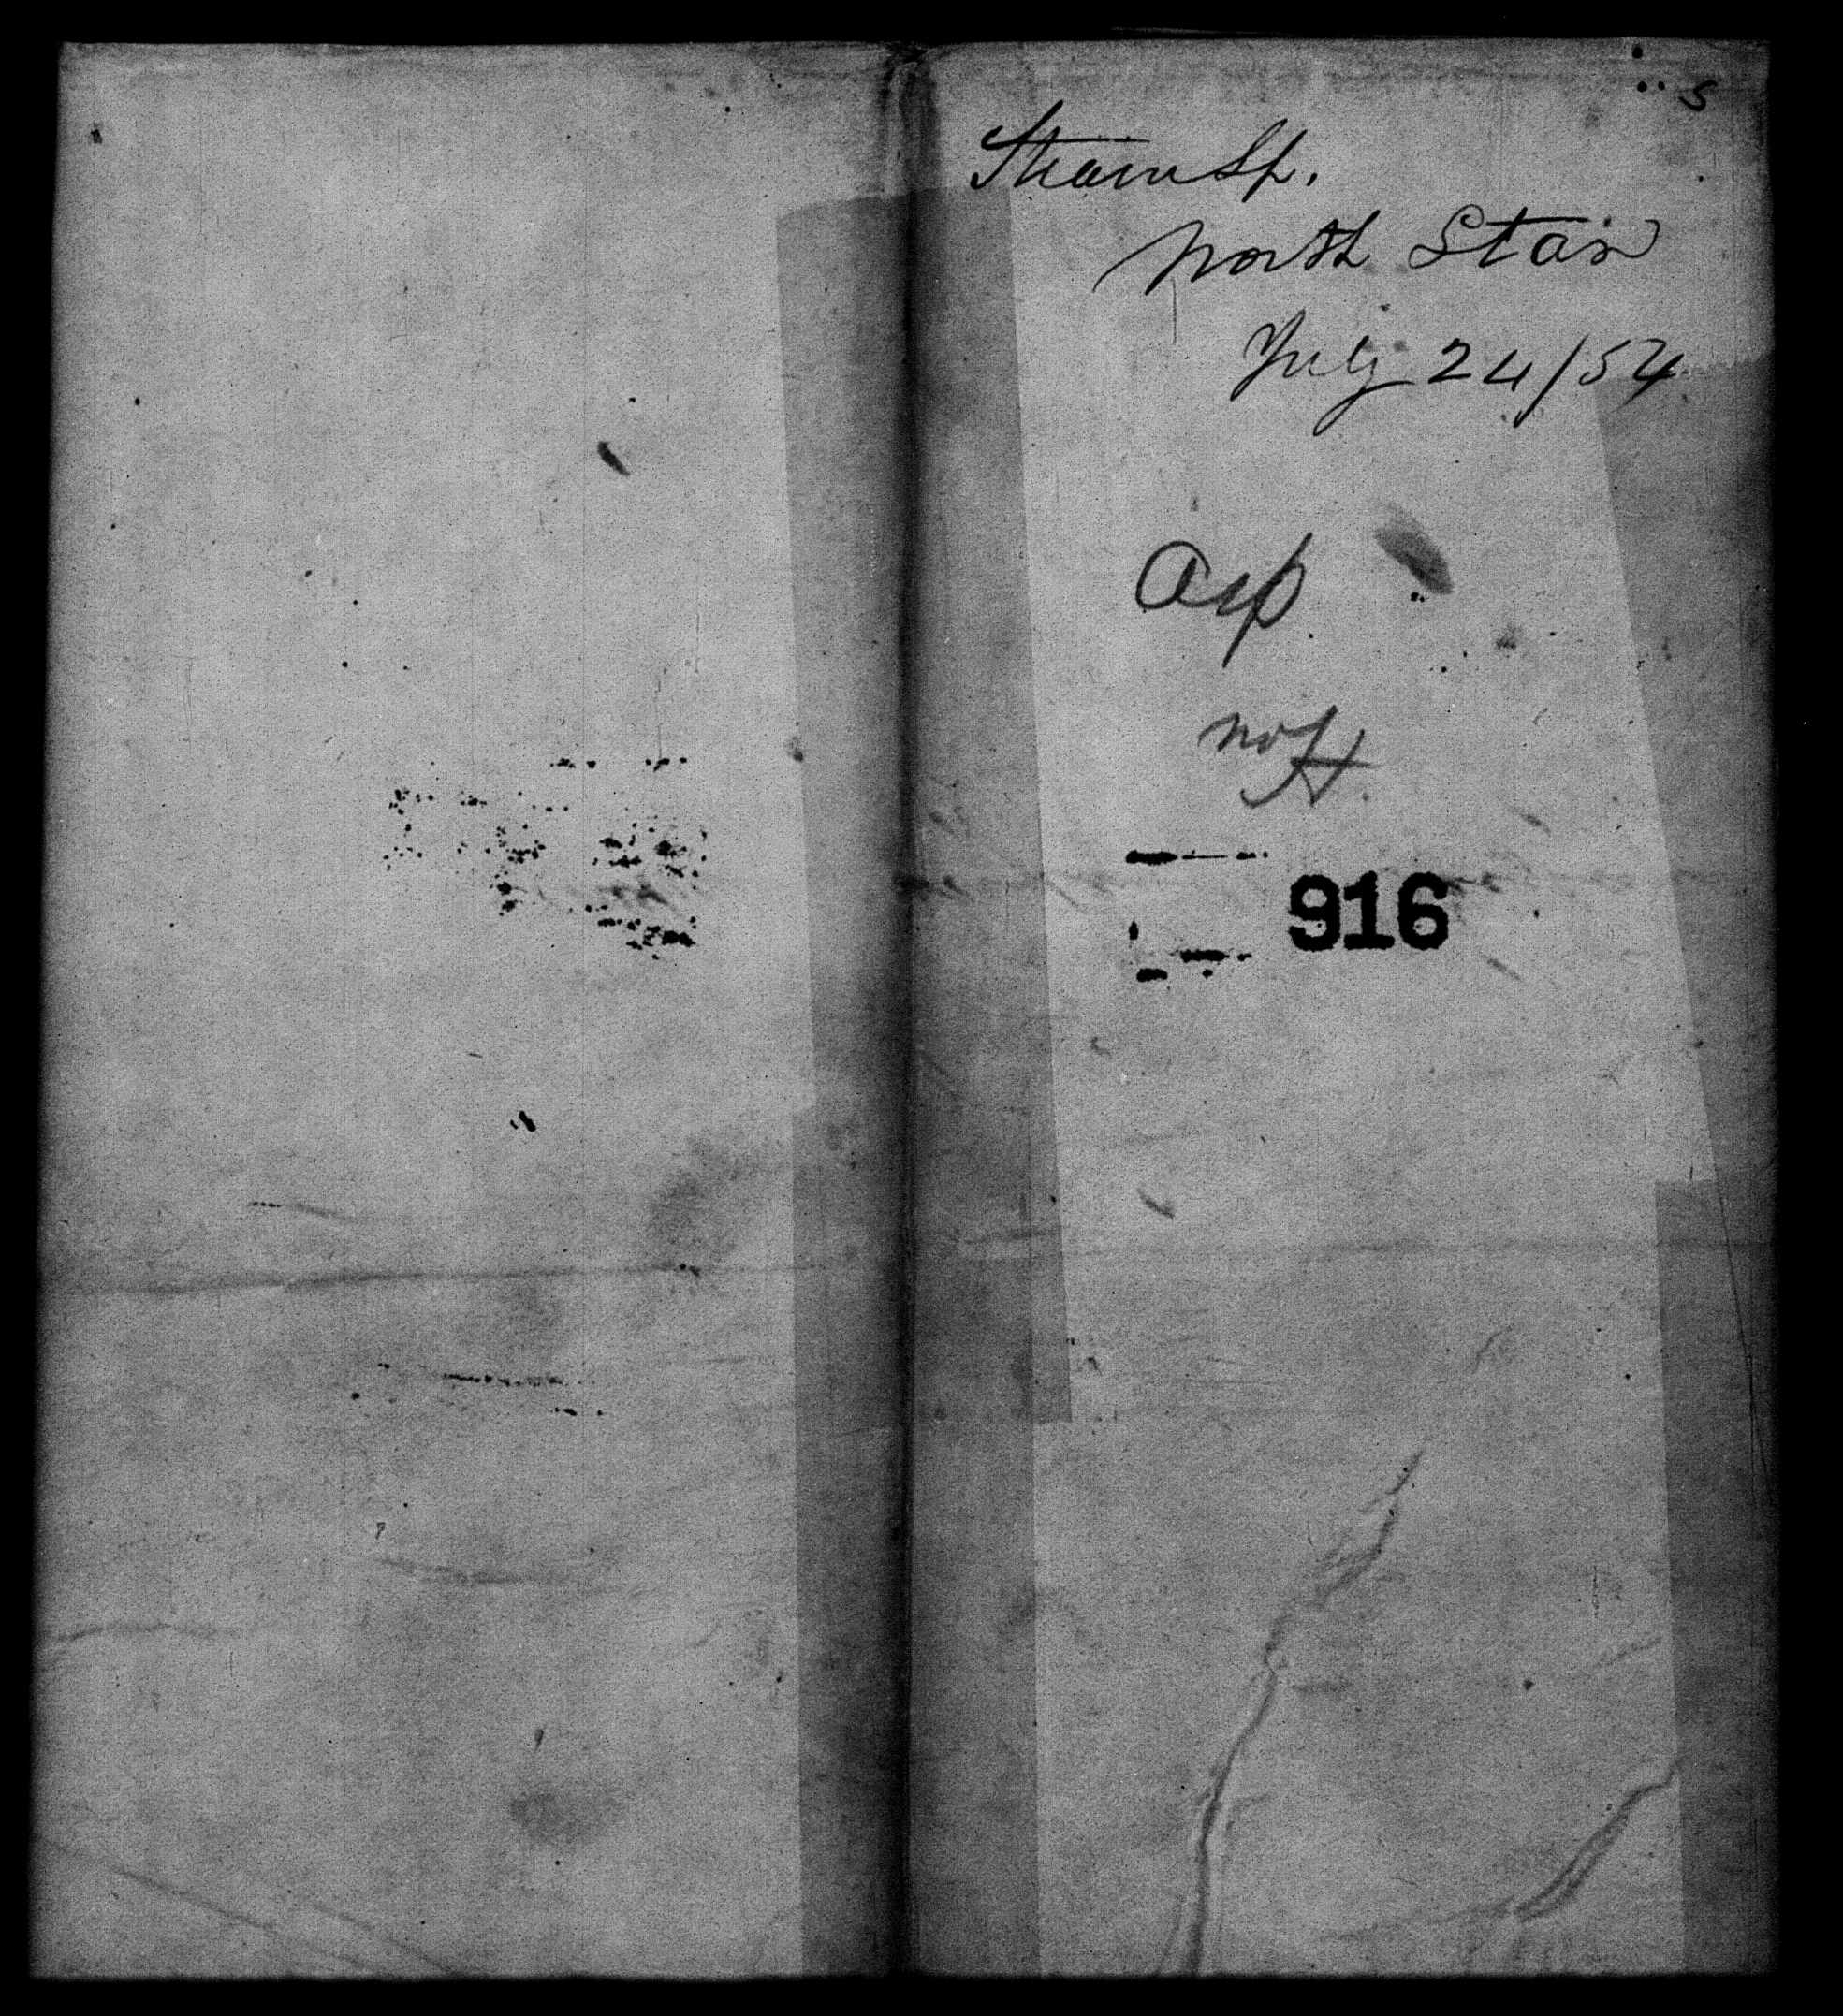 s
SteamSp.
North Star
July 24/54
Asp.
916